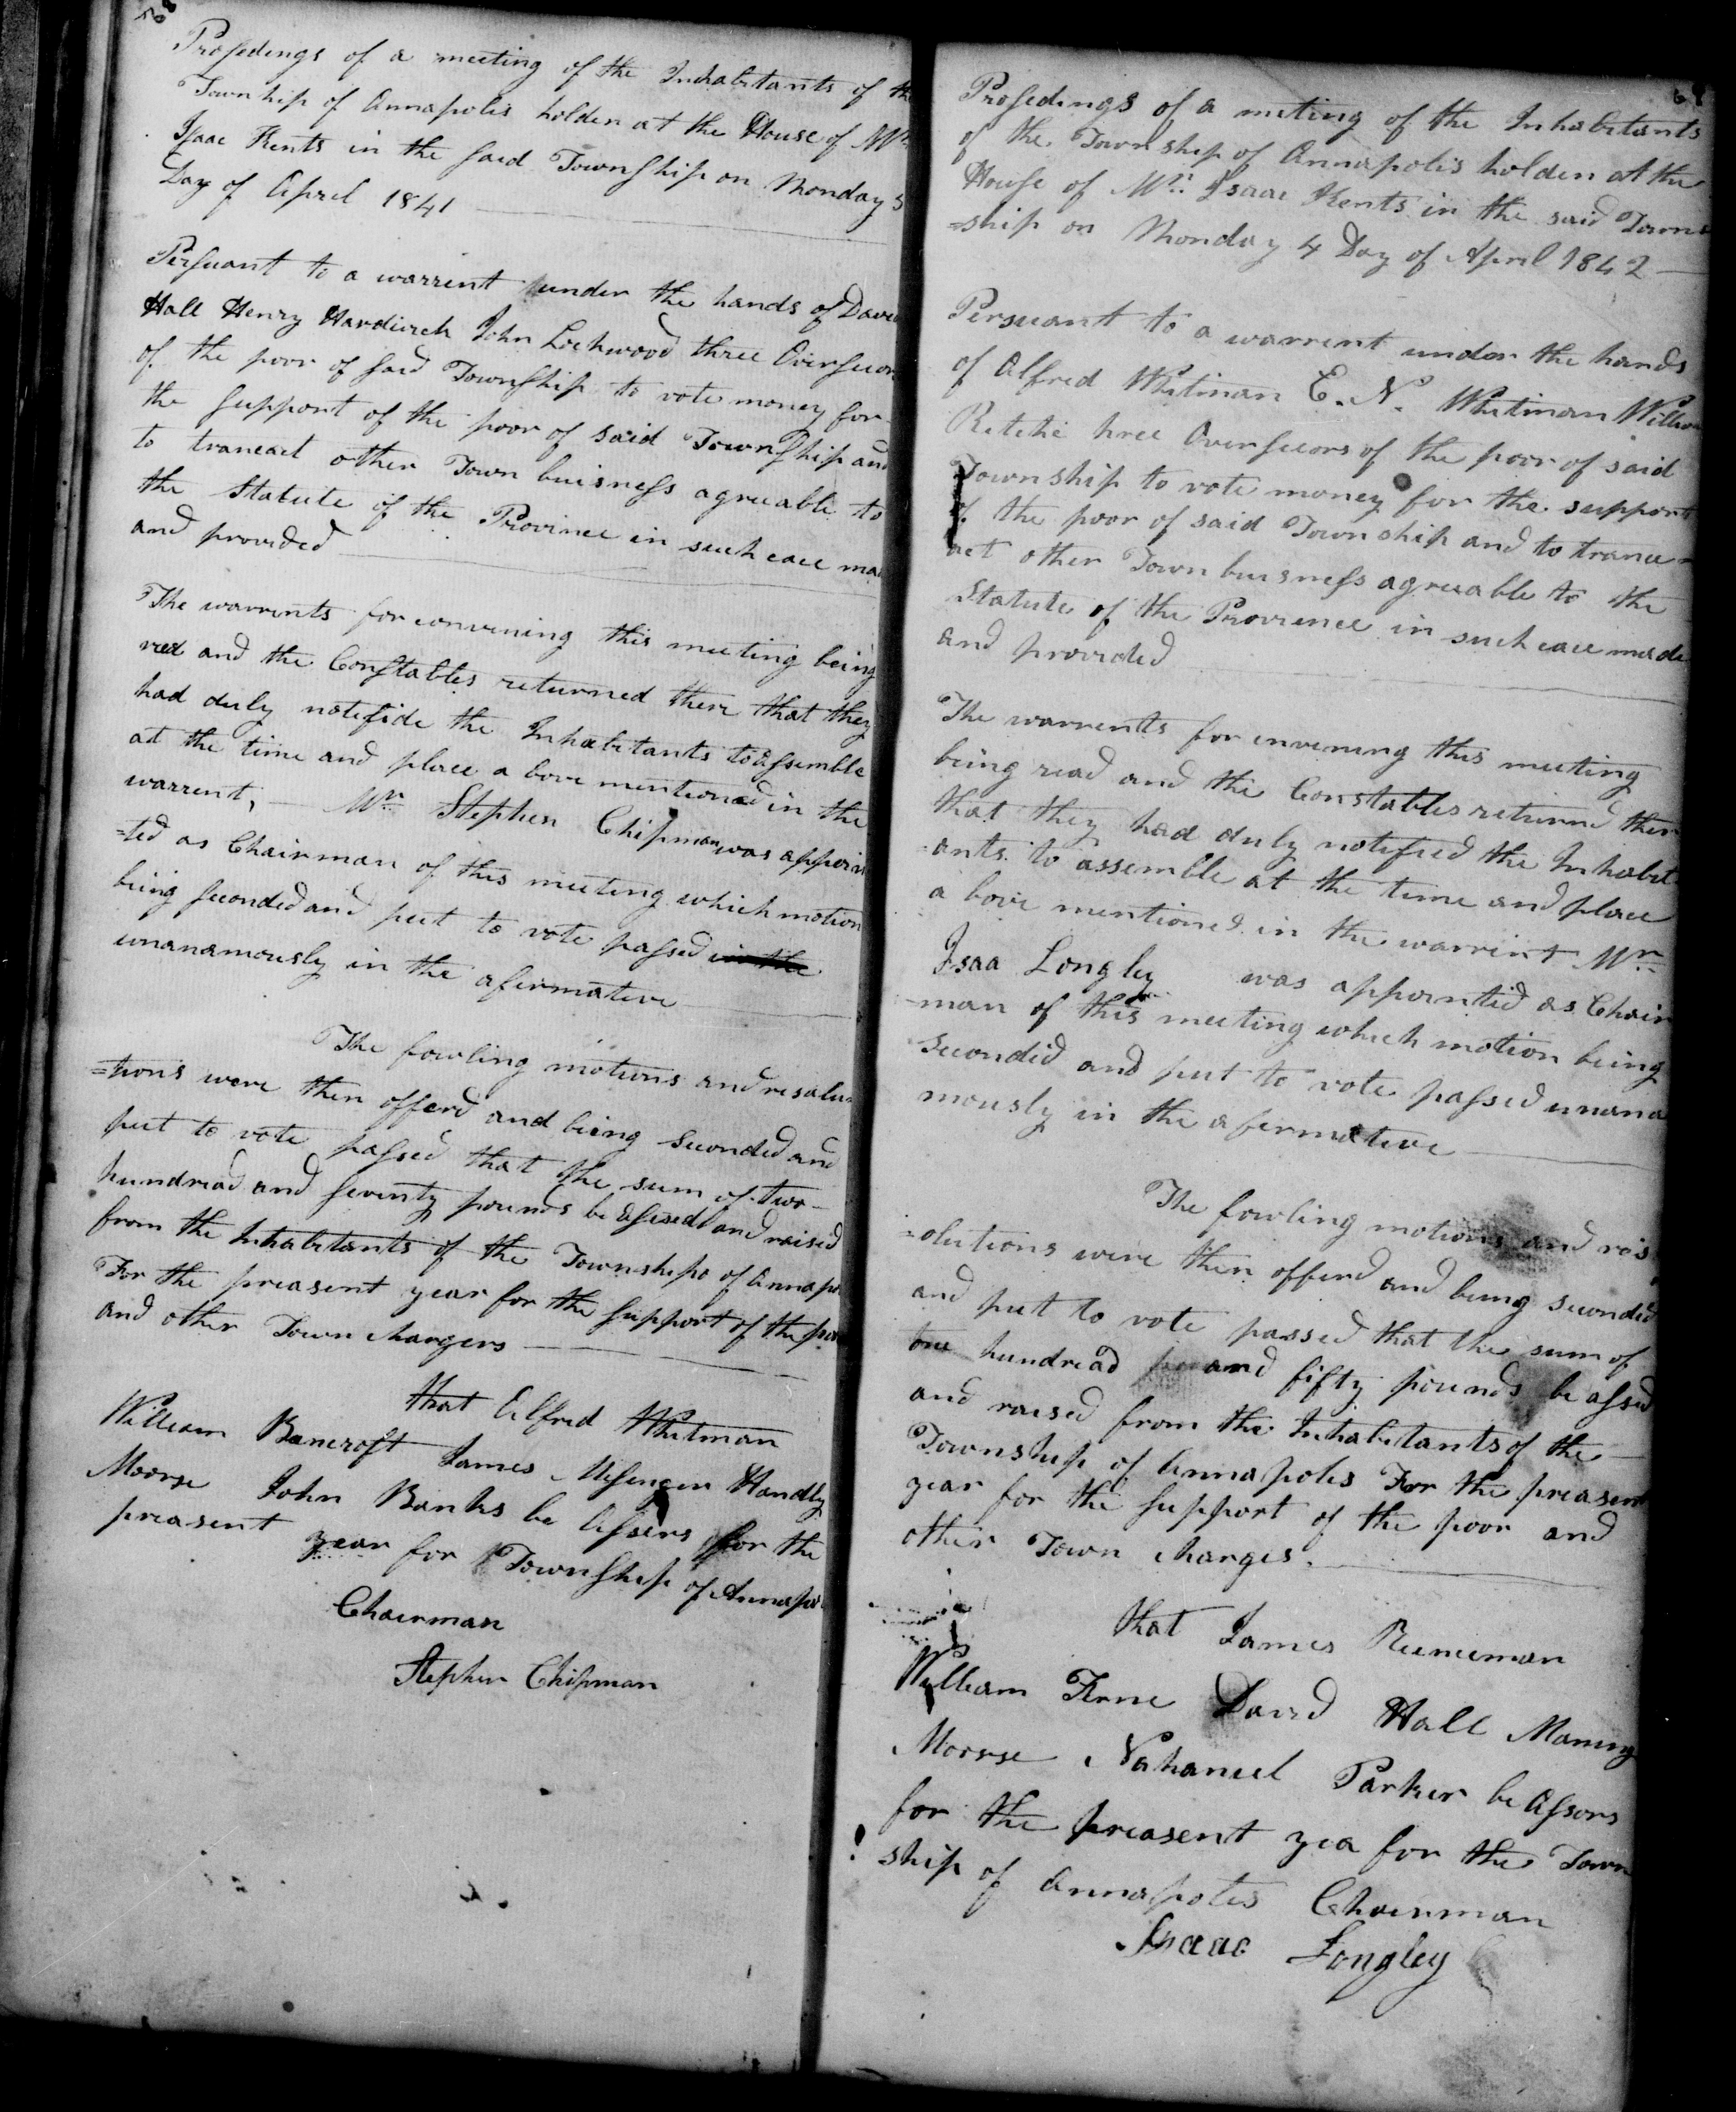 Prosedings of a meeting of the Inhabitants of the
Township of Annapolis holden at the House of Mr
Isaac Kents in the said Township on Monday 5
Day of April 1841
Persuant to a warrent under the hands of David
Hall Henry Hardwick John Lockwood three Overseors
of the poor of said Township to vote money for
the support of the poor of said Township and
to trancact other Town buisness agreeable to
the Statute of the Province in such cace mad
and provided
The warrents for convening this meeting being
red and the Constables returned there that they
had duly notefide the Inhabitants to assemble
at the time and place a bove mentioned in the
warrent, Mr Stephen Chipman was appoin
=ted as Chairman of this meeting which motion
being seconded and put to vote passed in the
unanamously in the afirmative
The fowling motions and resalu=
=tions were then offerd and being seconded and
put to vote passed that the sum of two
hundread and seventy pounds be assesed and raised
from the Inhabitants of the Townships of Annapo
For the preasent year for the support of the poor
and other Town chargers
that Alfred Whitman
William Bancroft James Messenger Handly
Moorse John Banks be Assers for the
preasent year for Township of Annapo
Chairman
Stephen Chipman
Prosedings of a meting of the Inhabitants
of the Township of Annapolis holden at the
House of Mr Isaac Kents in the said Town=
=ship on Monday 4 Day of April 1842
Persuant to a warrent under the hands
of Alfred Whitman E. N. Whitman William
Ritchi hree Overseeors of the poor of said
Township to vote money for the support
of the poor of said Township and to trance=
act other Town buisness agreeable to the
Statute of the Province in such cace made
and provided
The warrents for invening this meeting
being read and the Constables returnd ther
that they had duly notefied the Inhabit
=ants to assemble at the time and place
a bove mentioned in the warrint Mr
Isaa Longley was appointid as Chair
=man of this meeting which motion being
secondid and put to vote passed unana
mously in the afermative
The fowling motions and res
=olutions were then offerd and being seconded
and put to vote passed that the sum of
hundread and fifty pounds be assed
and raised from the Inhabitants of the
Township of Annapolis For the preasent
year for the support of the poor and
other Town charges.
that James Runciman
William David Hall Maning
Moorse Nathaneel Parker be Assors
for the preasent yea for the Town
ship of Annapolis Chairman
Isaac Longley